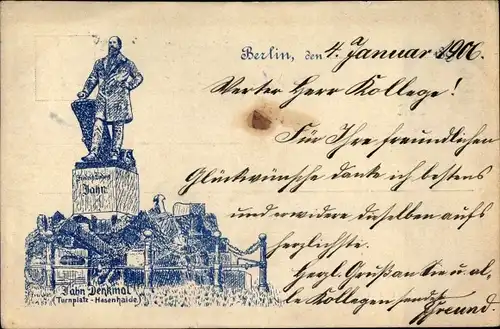 Berlin, den 4. Januar 1906.
Werter Herr Kollege!
Für Ihre freundlichen
Glückwünsche danke ich bestens
und erwidere dieselben aufs
herzlichste.
Herzl. Gruß an Sie u. al-
le Kollegen sendet
Freund.
Jahn
Jahn Denkmal
Turnplatz - Hasenhaide